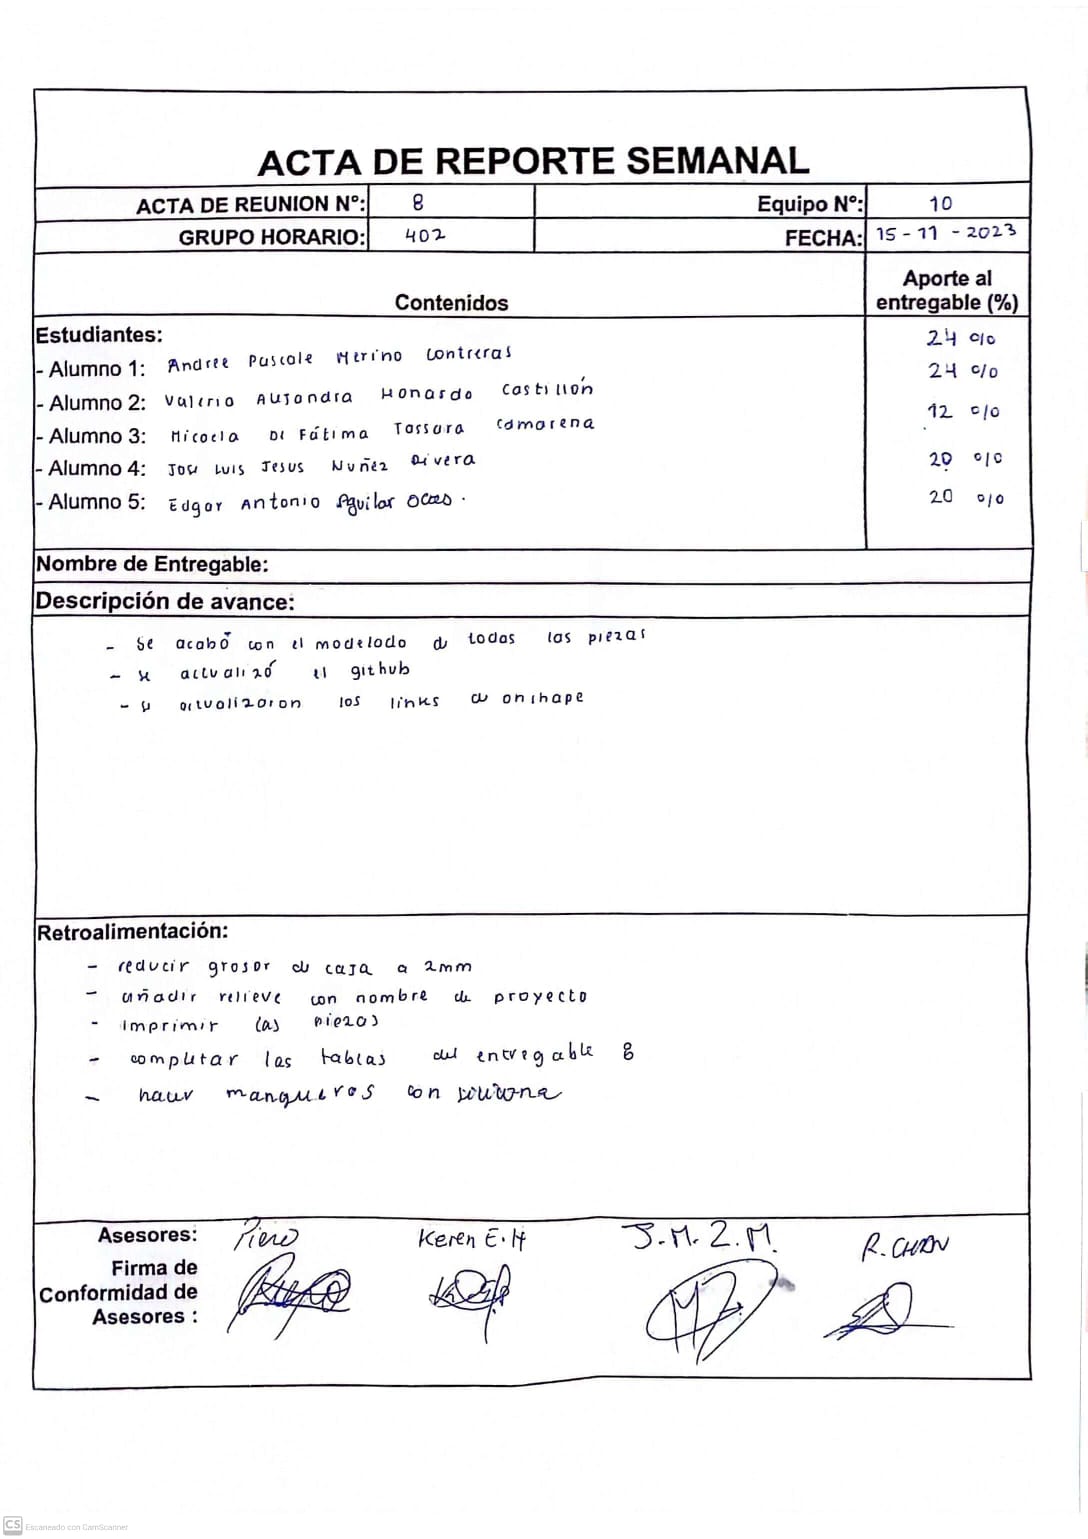 ACTA DE REPORTE SEMANAL
ACTA DE REUNION Nº: 8 Equipo Nº: 10
GRUPO HORARIO: 402 FECHA: 15-11-2023
Contenidos Aporte al entregable (%)
Estudiantes:
- Alumno 1: Andree Pascale Merino Contreras 24 %
- Alumno 2: Valeria Alejandra Honardo Castillón 24 %
- Alumno 3: Micaela De Fátima Tassara Camarena 12 %
- Alumno 4: Jose Luis Jesus Nuñez Rivera 20 %
- Alumno 5: Edgar Antonio Aguilar 20 %
Nombre de Entregable:
Descripción de avance:
- Se acabó con el modelado de todas las piezas
- se actualizó el github
- se actualizaron los links de onshape
Retroalimentación:
- reducir grosor de caja a 2mm
- añadir relieve con nombre de proyecto
- imprimir las piezas
- completar las tablas del entregable 8
- hacer mangueras con silicona
Asesores: Piero Keren E.H J.M.Z.M. R. CHAN
Firma de
Conformidad de
Asesores :
CS Escaneado con CamScanner